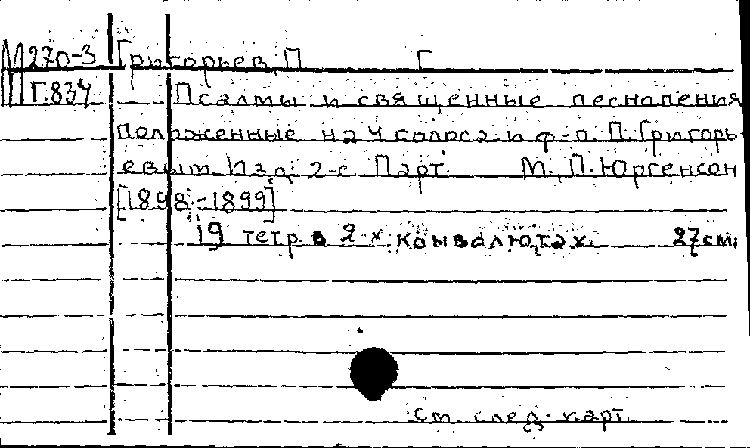 М 270-3 Григорьев, П. Г
Г.834 Псалмы и священные песнопения
положенные на 4 голоса и ф-п. П. Григорь-
евым. Изд. 2-е Парт. М., П. Юргенсон
[1898-1899]
19 тетр. в 2-х конволютах. 27 см.
см. след. карт.